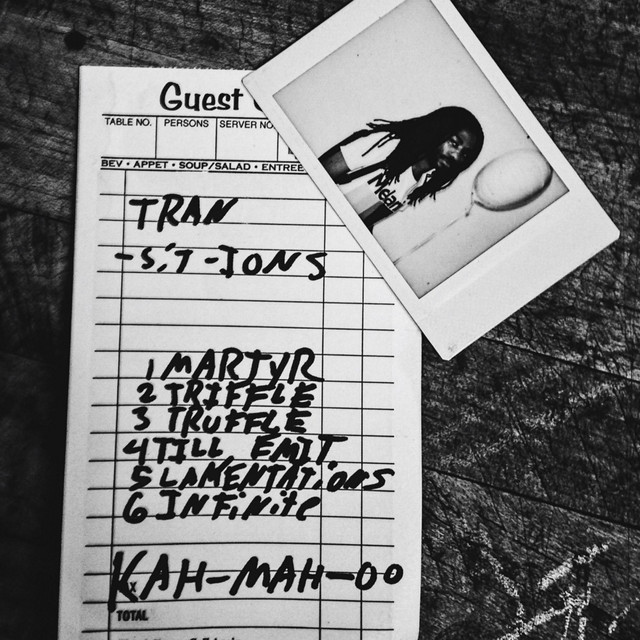 Guest
TABLE NO. PERSONS SERVER NO.
BEV • APPET • SOUP/SALAD • ENTREE
TRAN
-SiT-IONS
1 MARTYR
2 TRIFFLE
3 TRUFFLE
4 TILL EMIT
5 LAMENTATiONS
6 INFiNite
KAH-MAH-OO
TOTAL